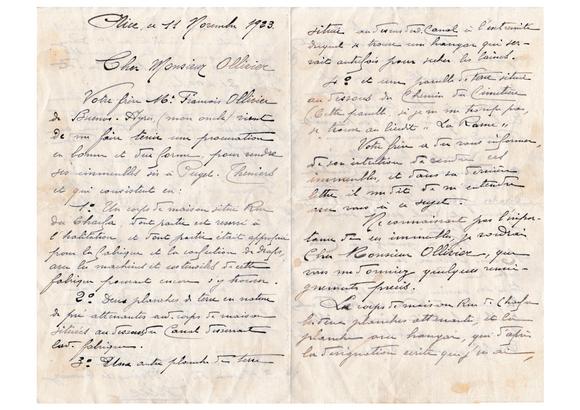 Nice, le 11 Novembre 1923.
Cher Monsieur Ollivier
Votre frère Mr François Ollivier
de Buenos-Ayres (mon oncle) vient
de me faire tenir une procuration
en bonne et due forme, pour vendre
ses immeubles sis à Puget-Theniers
et qui consistent en :
1º Un corps de maison située Rue
du Chaste, dont partie est réservé à
l'habitation, et dont partie était appropriée
pour la fabrique et la confection de draps,
avec les machines et ustensiles de cette
fabrique pouvant encore s'y trouver.
2º Deux planches de terre en nature
de pré attenantes au corps de maison
situées au dessous du Canal desservant
lad. fabrique.
3º Une autre planche de terre
située au dessus dud. Canal à l'extrémité
duquel se trouve un hangar qui ser-
vait autrefois pour sécher les laines.
4º et une parcelle de terre située
au dessous du Chemin du Cimetière
Cette parcelle si je ne me trompe pas
se trouve au lieudit "La Rame"
Votre frère a du vous informer,
de son intention de vendre ces
immeubles, et dans sa dernière
lettre il me dit de m'entendre
avec vous à ce sujet.
Ne connaissant pas l'impor-
tance de ces immeubles je voudrais
Cher Monsieur Ollivier, que
vous me donniez quelques rensei-
gnements précis.
Le corps de maison Rue de
les deux planches attenantes, et la
planche avec hangar, qui d'après
la désignation écrite que j'en ai,